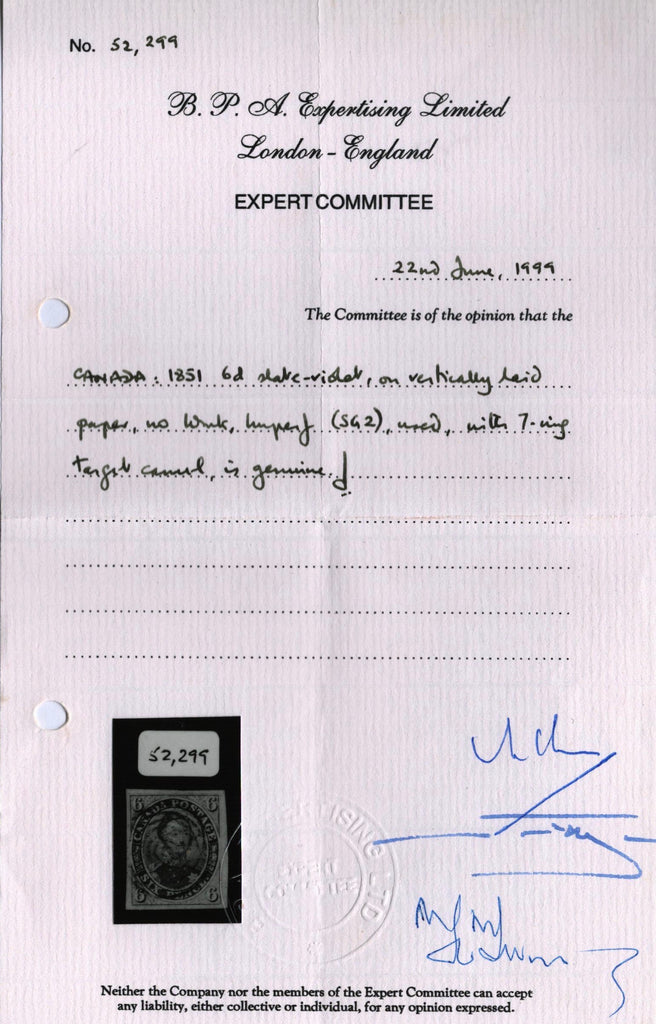 No. 52,299
B. P. A. Expertising Limited
London - England
EXPERT COMMITTEE
22nd June, 1999
The Committee is of the opinion that the
CANADA: 1851 6d slate-violet, on vertically laid
paper, no Wmk, Imperf (SG2), used, with 7-ring
target cancel, is genuine.
52,299
6 6
CANADA POSTAGE
SIX
6 6
ISING LTD
Neither the Company nor the members of the Expert Committee can accept
any liability, either collective or individual, for any opinion expressed.